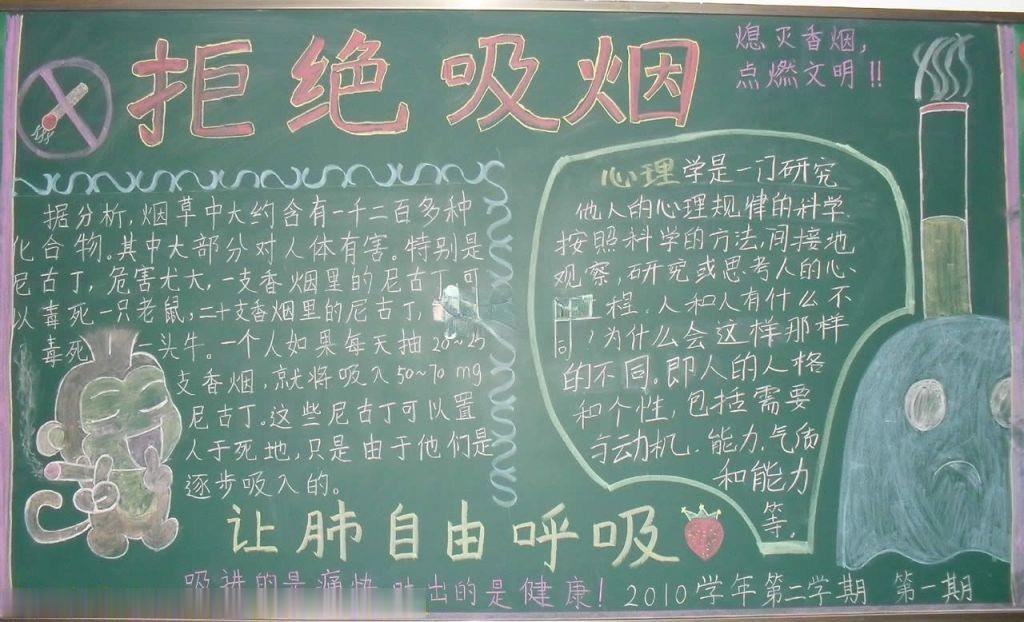 拒绝吸烟
熄灭香烟，
点燃文明!!
据分析，烟草中大约含有一千二百多种
化合物。其中大部分对人体有害。特别是
尼古丁，危害尤大，一支香烟里的尼古丁可
以毒死一只老鼠，二十支香烟里的尼古丁，
毒死 一头牛。一个人如果每天抽20~25
支香烟，就将吸入50~70 mg
尼古丁。这些尼古丁可以置
人于死地，只是由于他们是
逐步吸入的。
心理学是一门研究
他人的心理规律的科学.
按照科学的方法，间接地
观察，研究或思考人的心
程。人和人有什么不
同，为什么会这样那样
的不同。即人的人格
和个性，包括需要
与动机、能力、气质
和能力
等。
让肺自由呼吸
吸进的是痛快 吐出的是健康! 2010学年第二学期 第一期